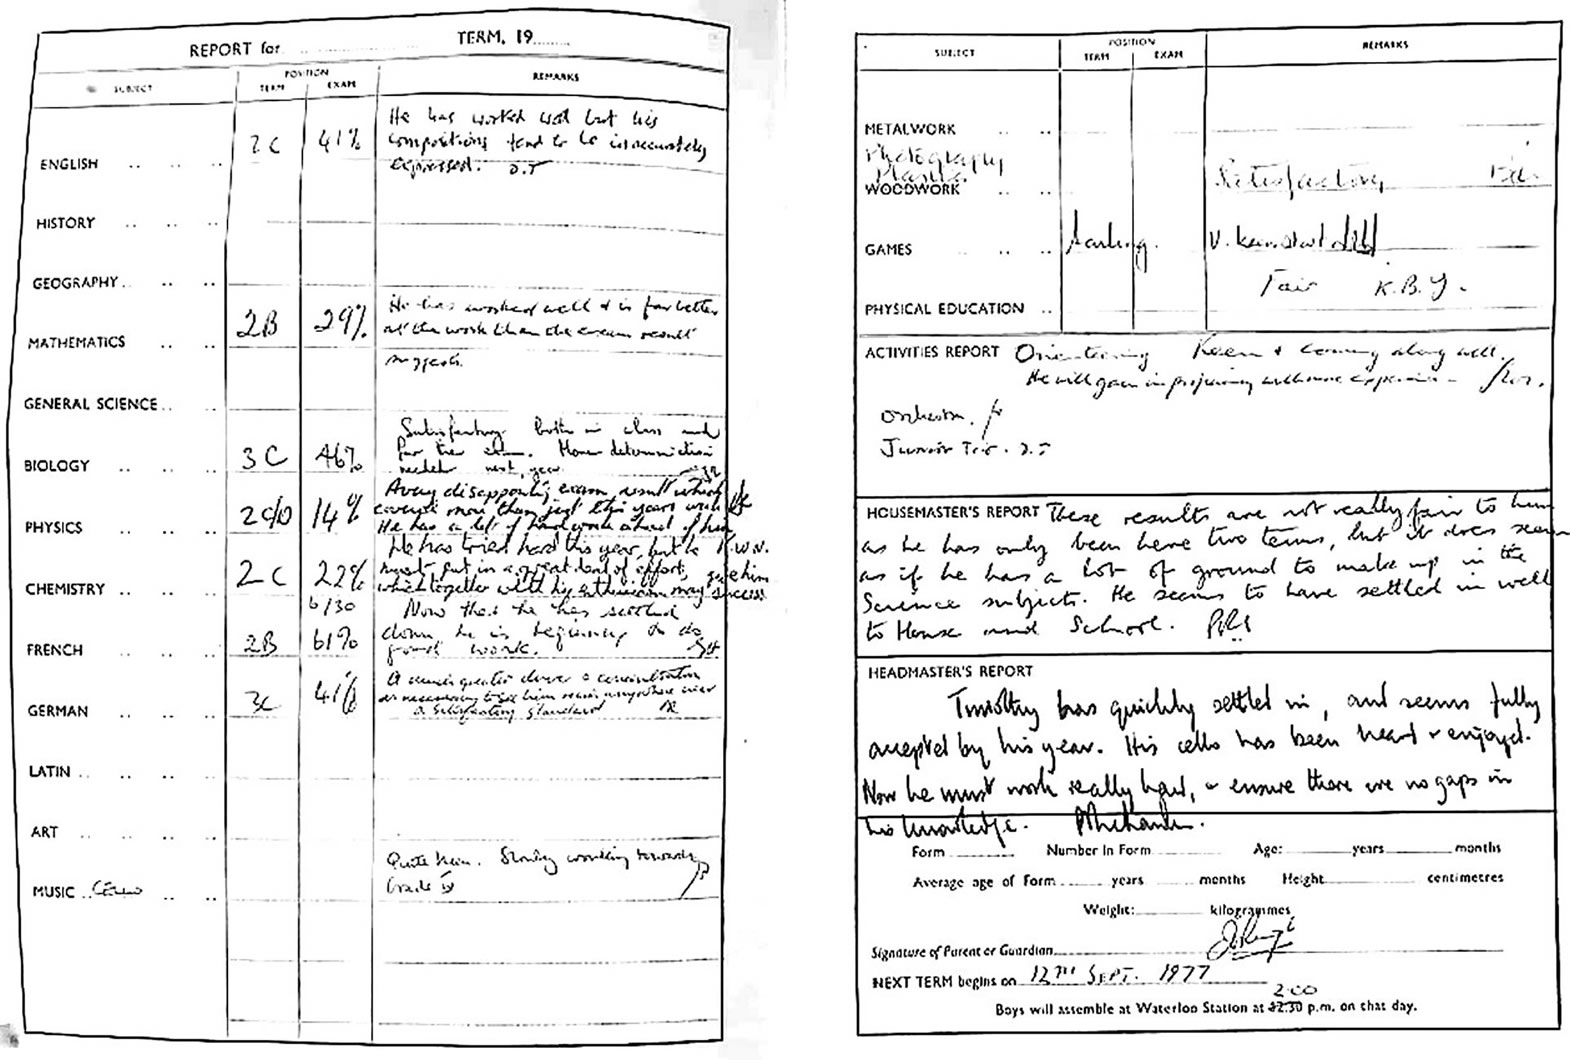 REPORT for TERM, 19
SUBJECT POSITION REMARKS
TERM EXAM
ENGLISH 2C 41% He has worked well but his
compositions tend to be inaccurately
expressed. D.T
HISTORY
GEOGRAPHY
MATHEMATICS 2B 29% He has worked well & is far better
at the work than the exam result
suggests.
GENERAL SCIENCE
BIOLOGY 3C 46% Satisfactory both in class and
for the exam. More determination
needed next year.
PHYSICS 2C/D 14% A very disappointing exam result which
covered more than just this years work. He
He has a lot of hard work ahead of him
CHEMISTRY 2C 22% He has tried hard this year, but he K.W.N.
must put in a great deal of effort,
which together with his enthusiasm may give him success
6/30
FRENCH 2B 61% Now that he has settled
down, he is beginning to do
good work.
GERMAN 3C 41% A much greater drive & concentration
is necessary to see him reach anywhere near
a satisfactory standard
LATIN
ART
MUSIC Cello Quite keen. Slowly working towards
Grade IV
SUBJECT POSITION REMARKS
TERM EXAM
METALWORK
Photography
Plastics
WOODWORK Satisfactory
GAMES V. keen
Fair K.B.Y.
PHYSICAL EDUCATION
ACTIVITIES REPORT Orienteering Keen & coming along well.
He will gain in proficiency with more experience
Orchestra.
Junior Trio. D.T
HOUSEMASTER'S REPORT These results are not really fair to him
as he has only been here two terms, but it does seem
as if he has a lot of ground to make up in the
Science subjects. He seems to have settled in well
to House and School.
HEADMASTER'S REPORT
Timothy has quickly settled in, and seems fully
accepted by his year. His cello has been heard & enjoyed.
Now he must work really hard, & ensure there are no gaps in
his knowledge.
Form Number In Form Age: years months
Average age of Form years months Height centimetres
Weight: kilogrammes
Signature of Parent or Guardian
NEXT TERM begins on 12TH SEPT. 1977
2.00
Boys will assemble at Waterloo Station at 12.30 p.m. on that day.